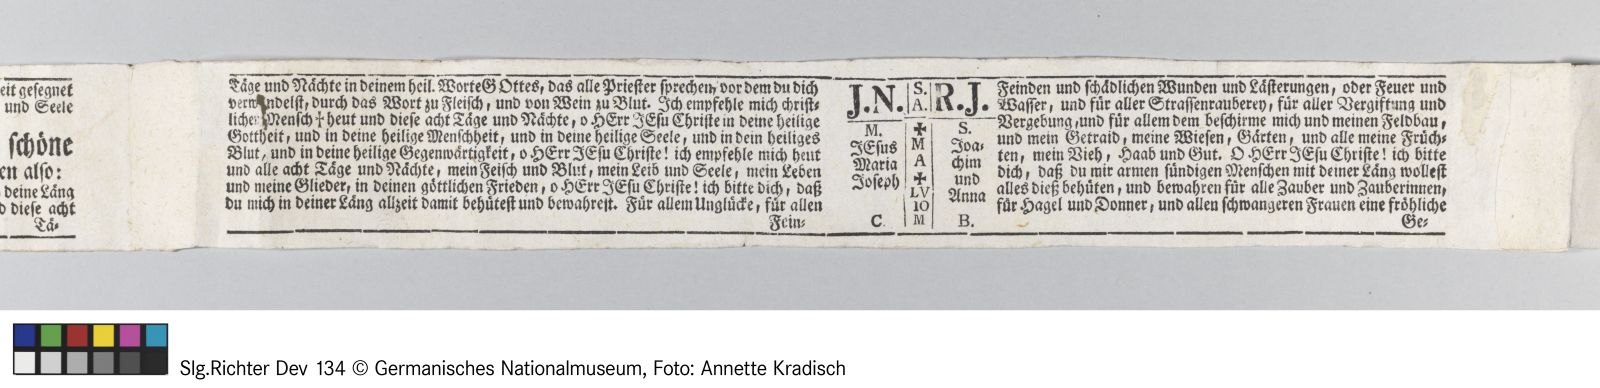 eit gesegnet
und Seele
schöne
en also:
deine Läng
d diese acht
Tä-
Täge und Nächte in deinem heil. Worte GOttes, das alle Priester sprechen, vor dem du dich
verwandelst, durch das Wort zu Fleisch, und von Wein zu Blut. Ich empfehle mich christ-
licher Mensch † heut und diese acht Täge und Nächte, o HErr JEsu Christe in deine heilige
Gottheit, und in deine heilige Menschheit, und in deine heilige Seele, und in dein heiliges
Blut, und in deine heilige Gegenwärtigkeit, o HErr JEsu Christe! ich empfehle mich heut
und alle acht Täge und Nächte, mein Feisch und Blut, mein Leib und Seele, mein Leben
und meine Glieder, in deinen göttlichen Frieden, o HErr JEsu Christe! ich bitte dich, daß
du mich in deiner Läng allzeit damit behütest und bewahrest. Für allem Unglücke, für allen
Fein-
J.N. S. A. R.J.
M.
JEsus
Maria
Joseph
C.
✠
M
A
✠
LV
IO
M
S.
Joa-
chim
und
Anna
B.
Feinden und schädlichen Wunden und Lästerungen, oder Feuer und
Wasser, und für aller Strassenrauberey, für aller Vergiftung und
Vergebung, und für allem dem beschirme mich und meinen Feldbau,
und mein Getraid, meine Wiesen, Gärten, und alle meine Früch-
ten, mein Vieh, Haab und Gut. O HErr JEsu Christe! ich bitte
dich, daß du mir armen sündigen Menschen mit deiner Läng wollest
alles dieß behüten, und bewahren für alle Zauber und Zauberinnen,
für Hagel und Donner, und allen schwangeren Frauen eine fröhliche
Ge-
Slg.Richter Dev 134 © Germanisches Nationalmuseum, Foto: Annette Kradisch